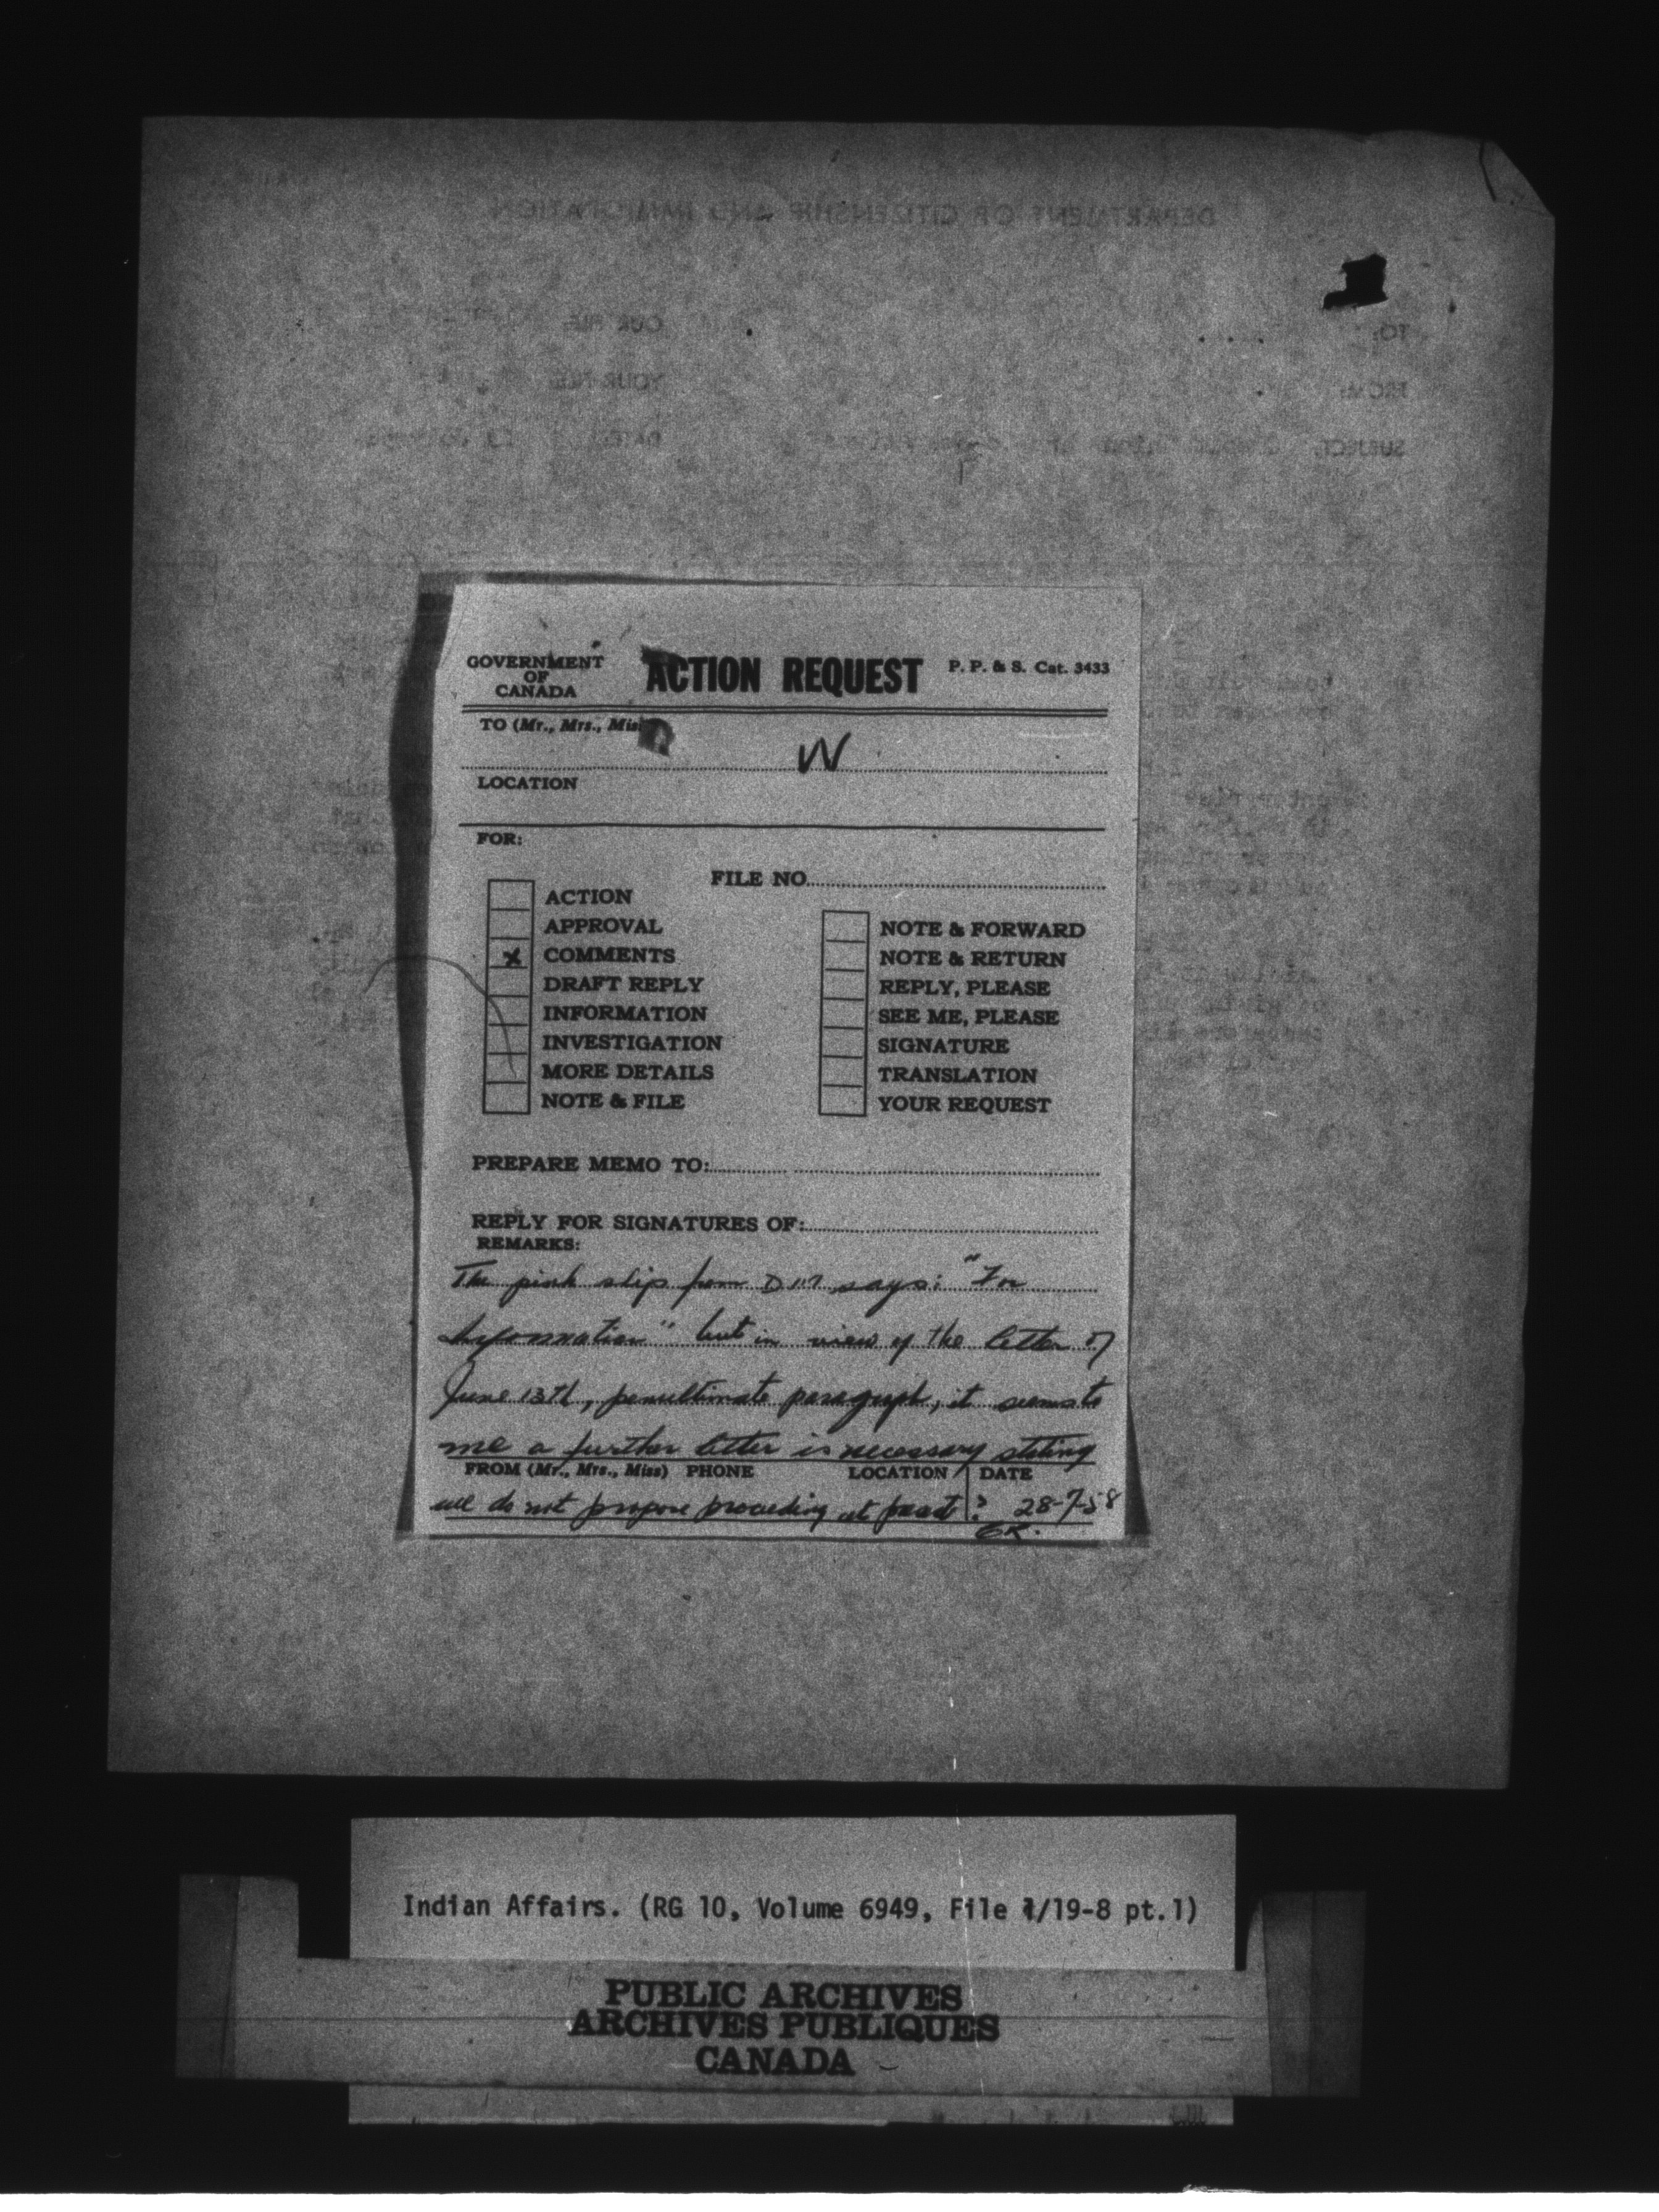 DEPARTMENT OF CITIZENSHIP AND IMMIGRATION
TO:
OUR FILE
FROM:
YOUR FILE
SUBJECT:
DATE
GOVERNMENT
OF
CANADA
ACTION REQUEST
P. P. & S. Cat. 3433
TO (Mr., Mrs., Miss
W
LOCATION
FOR:
FILE NO
ACTION
APPROVAL
x COMMENTS
DRAFT REPLY
INFORMATION
INVESTIGATION
MORE DETAILS
NOTE & FILE
NOTE & FORWARD
NOTE & RETURN
REPLY, PLEASE
SEE ME, PLEASE
SIGNATURE
TRANSLATION
YOUR REQUEST
PREPARE MEMO TO:
REPLY FOR SIGNATURES OF:
REMARKS:
The pink slip from says: "For
Information" but in view of the letter of
June 13th, penultimate paragraph, it seems to
me a further letter is necessary stating
FROM (Mr., Mrs., Miss) PHONE LOCATION DATE
we do not propose proceeding at ? 28-7-58
Indian Affairs. (RG 10, Volume 6949, File 1/19-8 pt.1)
PUBLIC ARCHIVES
ARCHIVES PUBLIQUES
CANADA